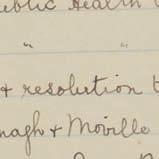 Public Health
" "
& resolution t
nagh & Moville